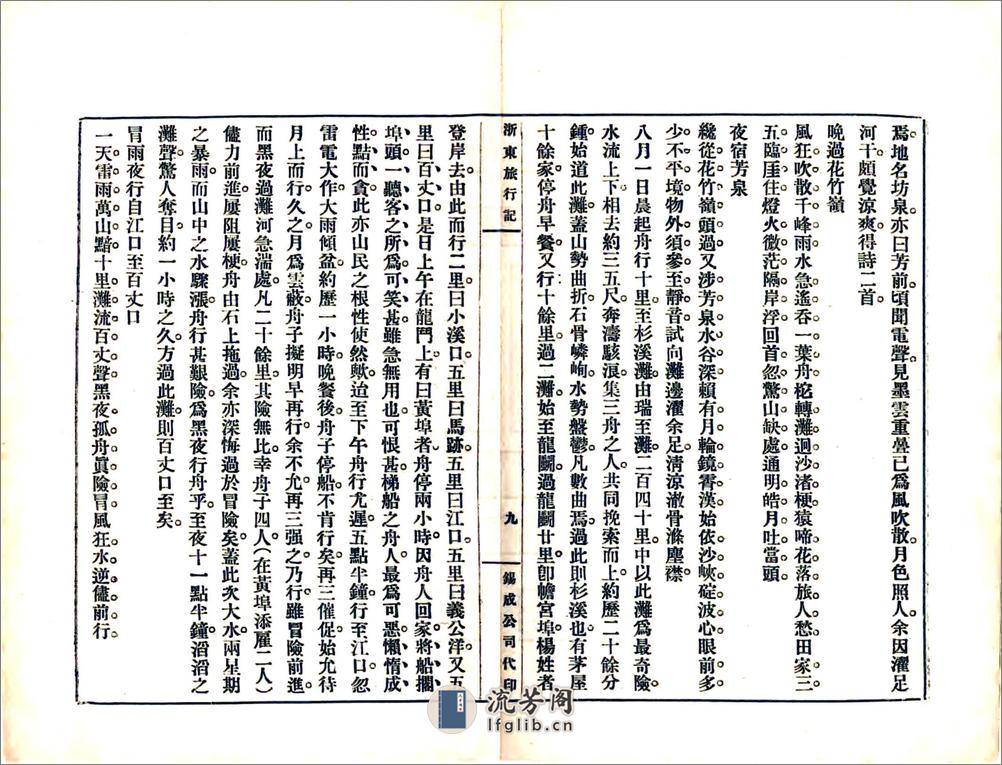 焉。地名坊泉亦曰芳前頃聞電聲見墨雲重疊已爲風吹散月色照人。余因濯足
河干頗覺涼爽得詩二首
晚過花竹嶺
風狂吹散千峰雨水急遙吞一葉舟柁轉灘迴沙渚梗猿啼花落旅人愁田家三
五臨厓住燈火微茫隔岸浮回首忽驚山缺處通明皓月吐當頭
夜宿芳泉
纔從花竹嶺頭過又涉芳泉水谷深賴有月輪鏡霄漢始依沙峽碇波心眼前多
少不平境物外須參至靜音試向灘邊濯余足淸涼澈骨滌塵襟
八月一日晨起舟行十里至杉溪灘由瑞至灘二百四十里中以此灘爲最奇險
水流上下相去約三五尺奔濤駭浪集三舟之人共同挽索而上約歷二十餘分
鍾始道此灘蓋山勢曲折石骨嶙峋水勢盤鬱凡數曲焉過此則杉溪也有茅屋
十餘家停舟早餐又行十餘里過二灘始至龍鬭過龍鬭廿里卽幨宮埠楊姓者
浙東旅行記
九
錫成公司代印
登岸去由此而行二里曰小溪口五里曰馬跡五里曰江口五里曰義公洋又五
里曰百丈口是日上午在龍門上有曰黃埠者舟停兩小時因舟人回家將船擱
埠頭一聽客之所爲可笑甚雖急無用也可恨甚梯船之舟人最爲可惡懶惰成
性點而貪此亦山民之根性使然歟迨至下午舟行尤遲五點半鐘行至江口忽
雷電大作大雨傾盆約歷一小時晚餐後舟子停船不肯行矣再三催促始允待
月上而行久之月爲雲蔽舟子擬明早再行余不允再三强之乃行雖冒險前進
而黑夜過灘河急湍處凡二十餘里其險無比幸舟子四人(在黃埠添雇二人)
儘力前進屢阻屢梗舟由石上拖過余亦深悔過於冒險矣蓋此次大水兩星期
之暴雨而山中之水驟漲舟行甚艱險爲黑夜行舟乎至夜十一點半鐘滔滔之
灘聲驚人奪目約一小時之久方過此灘則百丈口至矣
冒雨夜行自江口至百丈口
一天雷雨萬山黯十里灘流百丈聲黑夜孤舟眞險冒風狂水逆儘前行
流芳阁
lfglib.cn